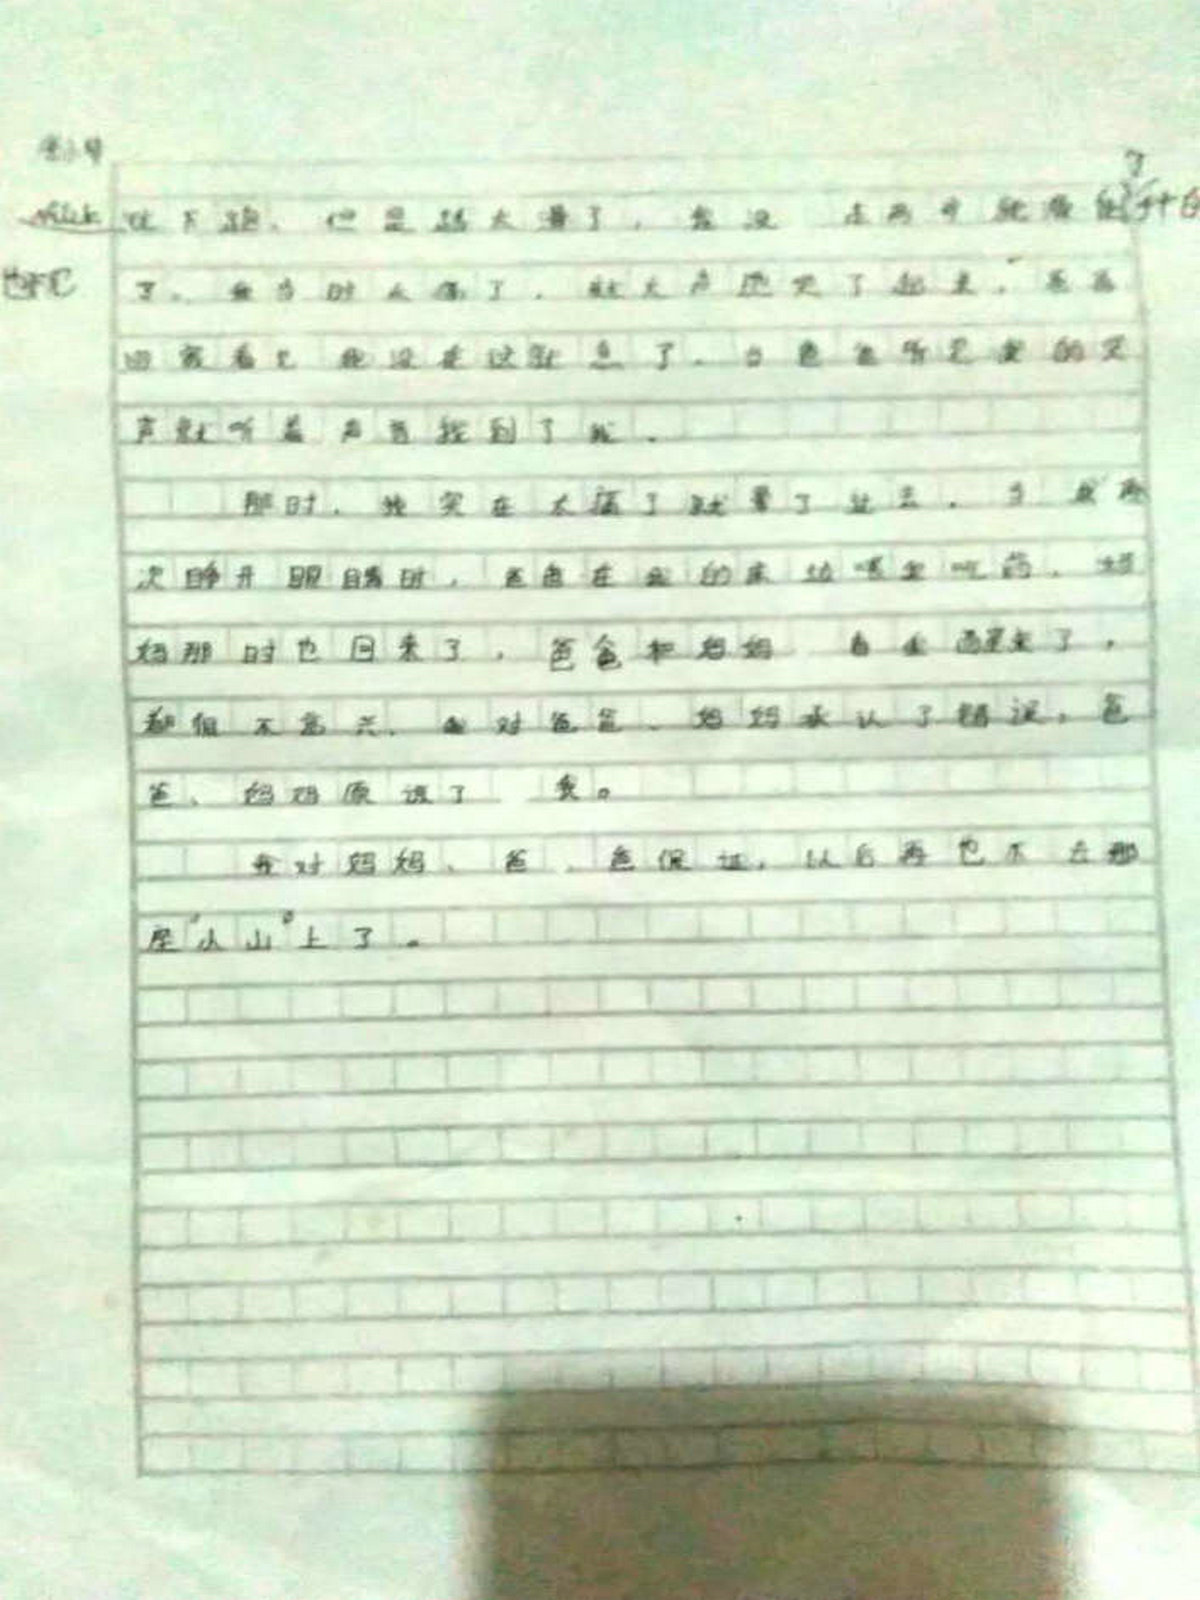 往下跑，但是路太滑了，我没走两步就
了。我当时太痛了，就大声地哭了起来，爸爸
回家看见我没在这就急了，当爸爸听见我的哭
声就听着声音找到了我。
那时，我实在太痛了就晕了过去。当我再
次睁开眼睛时，爸爸在我的床边喂我吃药，妈
妈那时也回来了，爸爸和妈妈看我醒来了，
都很不高兴，我对爸爸、妈妈承认了错误，爸
爸、妈妈原谅了我。
我对妈妈、爸、爸保证，以后再也不去那
座"小山"上了。